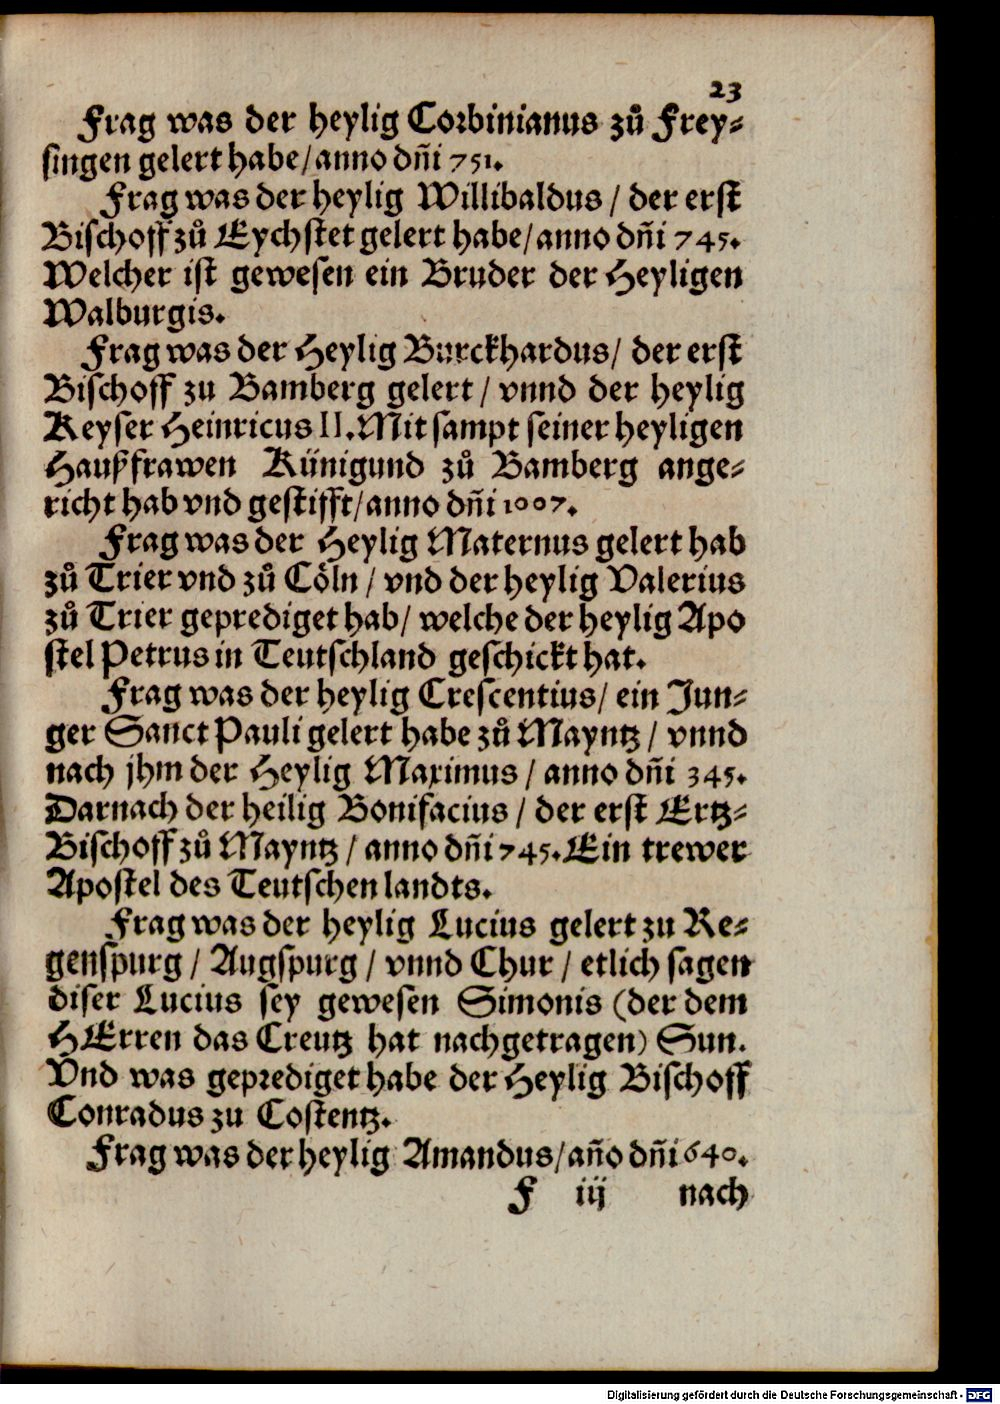 23
Frag was der heylig Corbinianus zů Frey⸗
singen gelert habe/anno dn̄i 751.
Frag was der heylig Willibaldus / der erst
Bischoff zů Eychstet gelert habe/anno dn̄i 745.
Welcher ist gewesen ein Bruder der Heyligen
Walburgis.
Frag was der Heylig Burckhardus/ der erst
Bischoff zu Bamberg gelert / vnnd der heylig
Keyser Heinricus II. Mit sampt seiner heyligen
Haußfrawen Künigund zů Bamberg ange⸗
richt hab vnd gestifft/anno dn̄i 1007.
Frag was der Heylig Maternus gelert hab
zů Trier vnd zů Cöln / vnd der heylig Valerius
zů Trier geprediget hab/ welche der heylig Apo
stel Petrus in Teutschland geschickt hat.
Frag was der heylig Crescentius/ ein Jun⸗
ger Sanct Pauli gelert habe zů Mayntz / vnnd
nach jhm der Heylig Maximus / anno dn̄i 345.
Darnach der heilig Bonifacius / der erst Ertz⸗
Bischoff zů Mayntz / anno dn̄i 745. Ein trewer
Apostel des Teutschen landts.
Frag was der heylig Lucius gelert zu Re⸗
genspurg / Augspurg / vnnd Chur / etlich sagen
diser Lucius sey gewesen Simonis (der dem
HErren das Creutz hat nachgetragen) Sun.
Vnd was geprediget habe der Heylig Bischoff
Conradus zu Costentz.
Frag was der heylig Amandus/an̄o dn̄i 640.
F iij nach
Digitalisierung gefördert durch die Deutsche Forschungsgemeinschaft - DFG